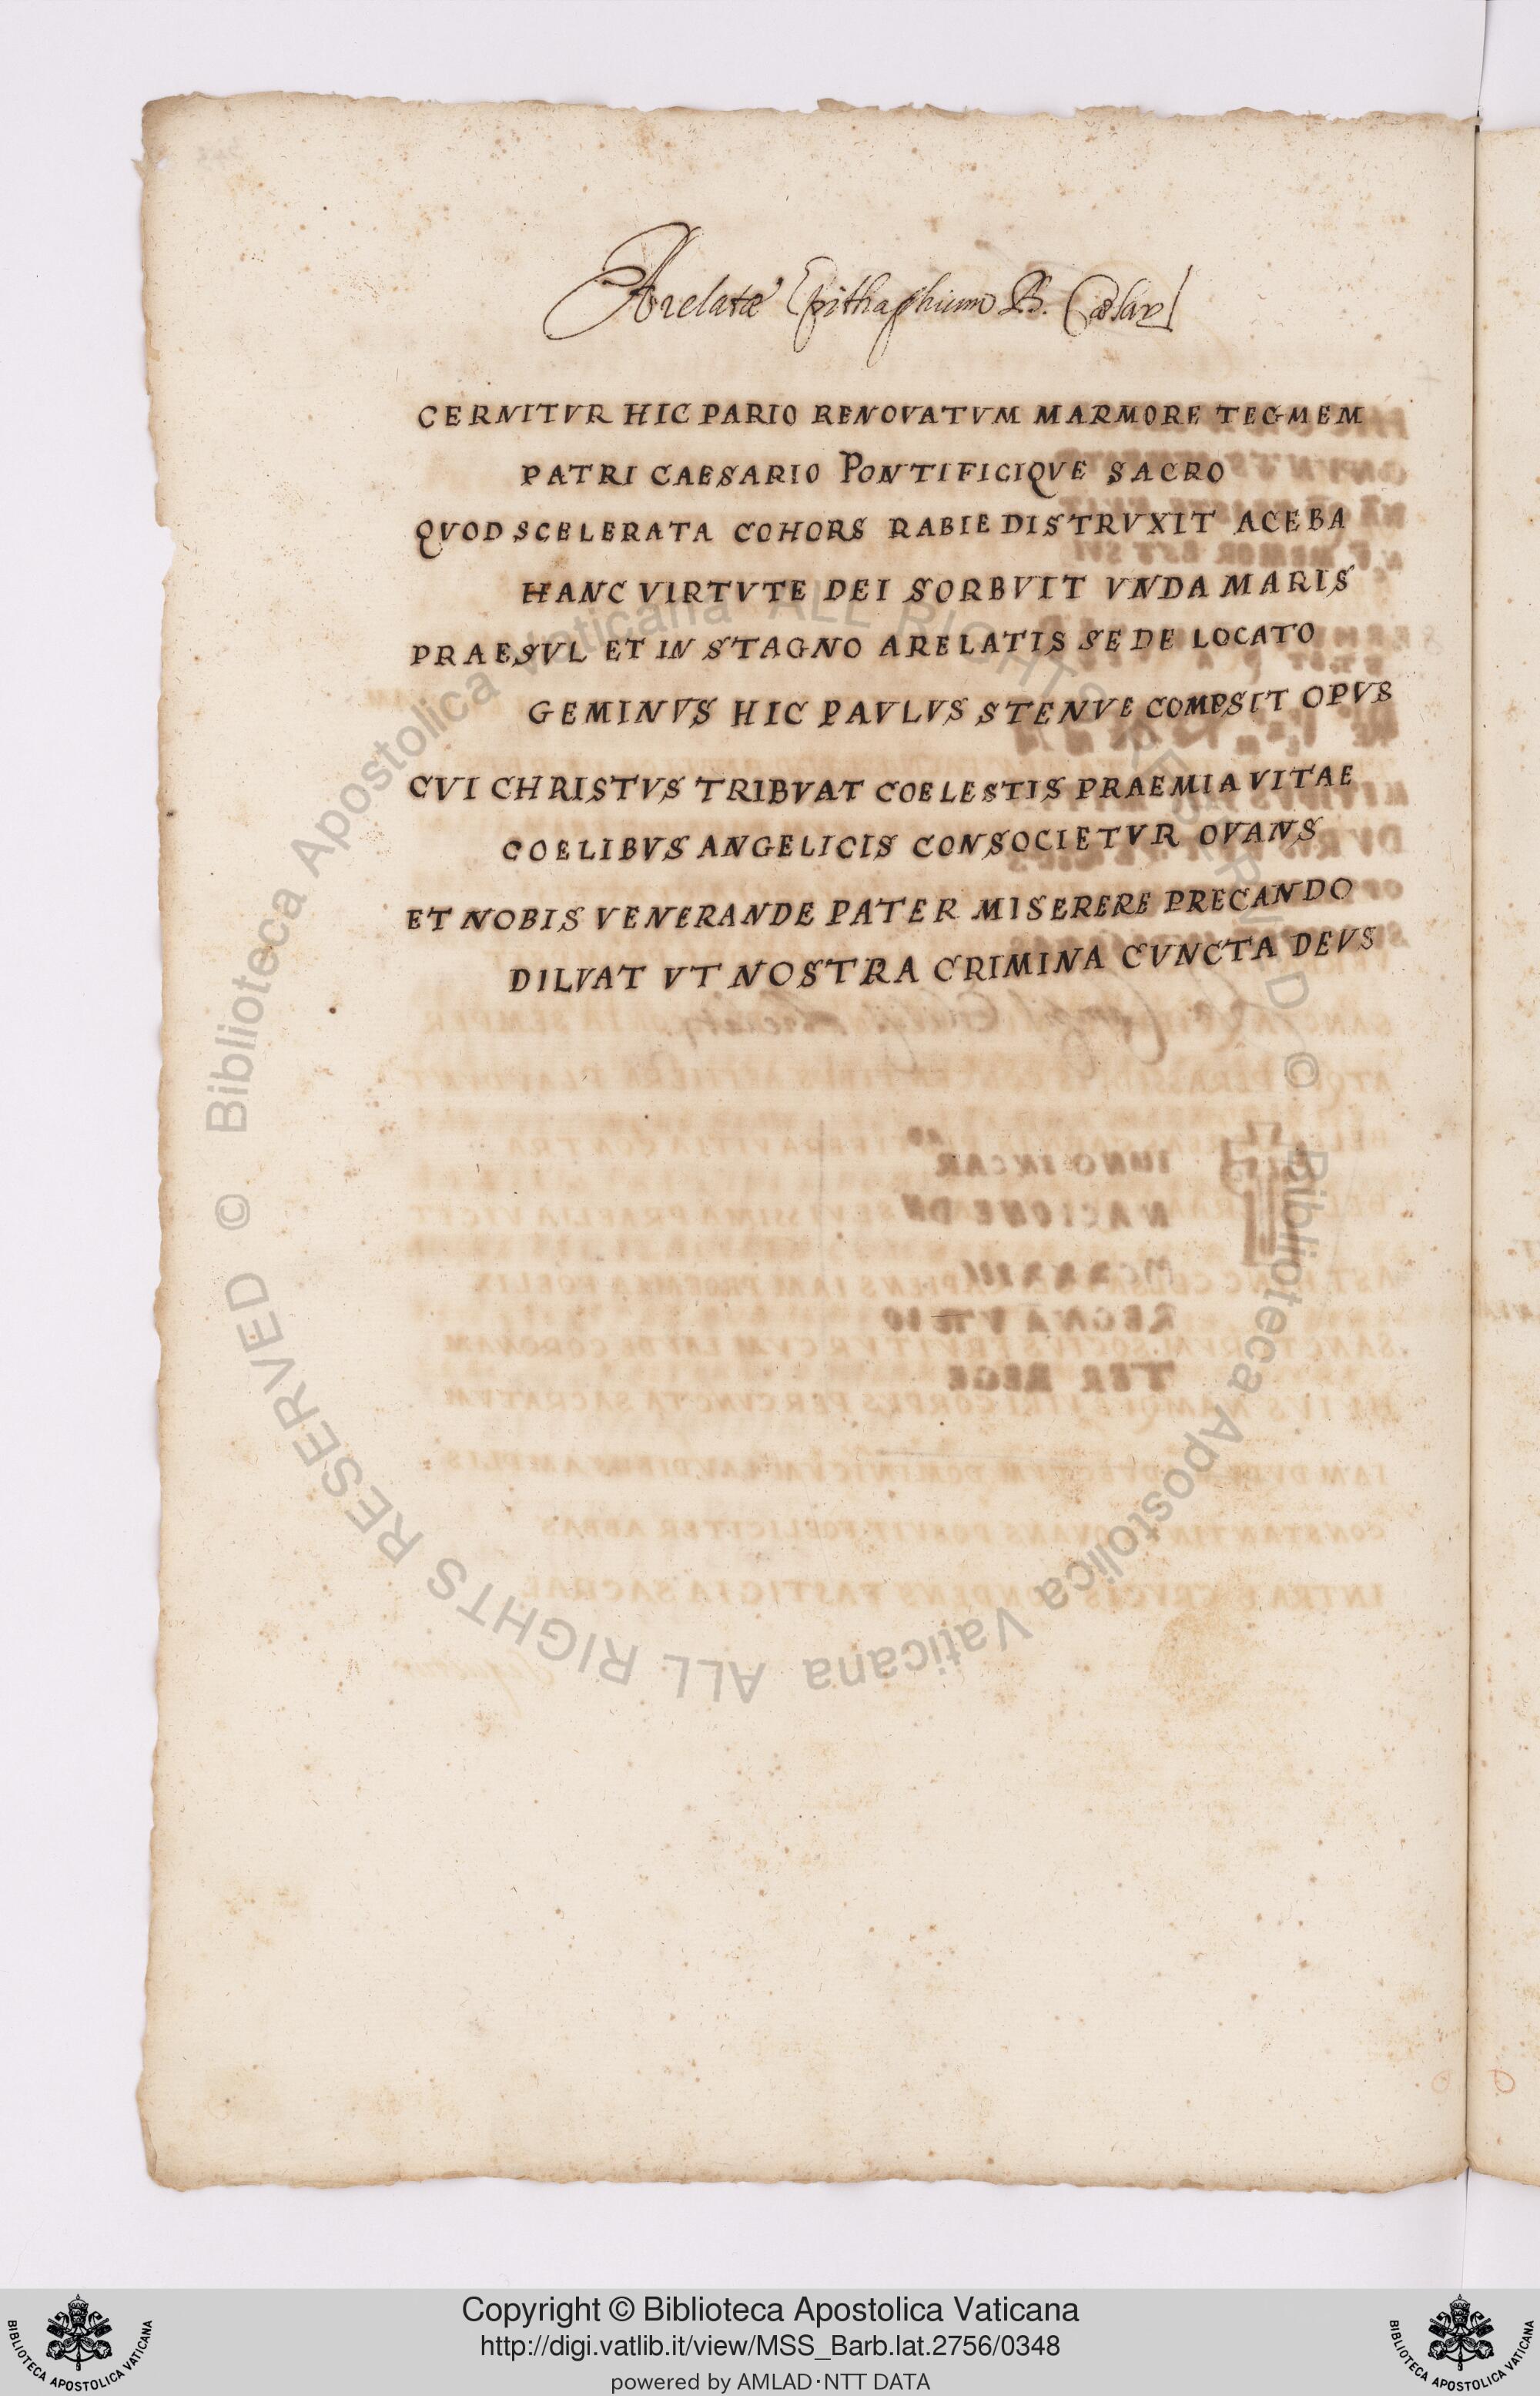 Arelatæ Epithaphium B. Cæsarj
CERNITVR HIC PARIO RENOVATVM MARMORE TEGMEM
PATRI CAESARIO PONTIFICIQVE SACRO
QVOD SCELERATA COHORS RABIE DISTRVXIT ACEBA
HANC VIRTVTE DEI SORBVIT VNDA MARIS
PRAESVL ET IN STAGNO ARELATIS SEDE LOCATO
GEMINVS HIC PAVLVS STENVE COMPSIT OPVS
CVI CHRISTVS TRIBVAT COELESTIS PRAEMIA VITAE
COELIBVS ANGELICIS CONSOCIETVR OVANS
ET NOBIS VENERANDE PATER MISERERE PRECANDO
DILVAT VT NOSTRA CRIMINA CVNCTA DEVS
© Biblioteca Apostolica Vaticana ALL RIGHTS RESERVED © Biblioteca Apostolica Vaticana ALL RIGHTS RESERVED
Copyright © Biblioteca Apostolica Vaticana
http://digi.vatlib.it/view/MSS_Barb.lat.2756/0348
powered by AMLAD·NTT DATA
BIBLIOTECA APOSTOLICA VATICANA
BIBLIOTECA APOSTOLICA VATICANA